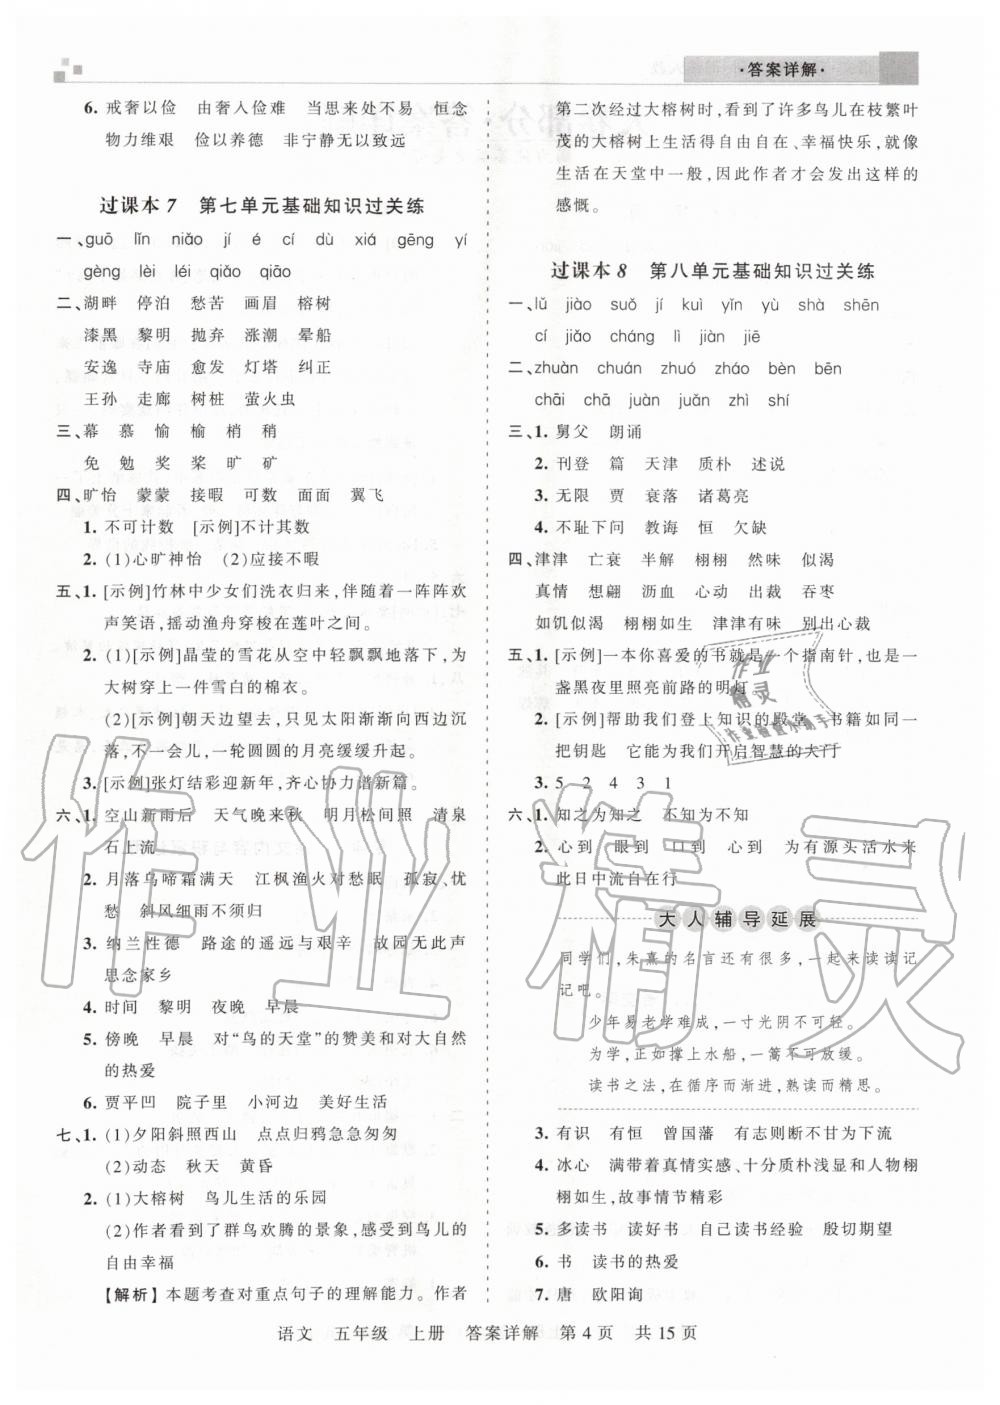 ·答案详解·
6. 戒奢以俭　由奢入俭难　当思来处不易　恒念
物力维艰　俭以养德　非宁静无以致远
过课本7　第七单元基础知识过关练
一、guō　lǐn　niǎo　jí　é　cí　dù　xiá　gēng　yí
gèng　lèi　léi　qiǎo　qiāo
二、湖畔　停泊　愁苦　画眉　榕树
漆黑　黎明　抛弃　涨潮　晕船
安逸　寺庙　愈发　灯塔　纠正
王孙　走廊　树桩　萤火虫
三、幕　慕　愉　榆　梢　稍
免　勉　奖　桨　旷　矿
四、旷怡　蒙蒙　接暇　可数　面面　翼飞
1. 不可计数　[示例]不计其数
2. (1)心旷神怡　(2)应接不暇
五、1. [示例]竹林中少女们洗衣归来,伴随着一阵阵欢
声笑语,摇动渔舟穿梭在莲叶之间。
2. (1)[示例]晶莹的雪花从空中轻飘飘地落下,为
大树穿上一件雪白的棉衣。
(2)[示例]朝天边望去,只见太阳渐渐向西边沉
落,不一会儿,一轮圆圆的月亮缓缓升起。
3. [示例]张灯结彩迎新年,齐心协力谱新篇。
六、1. 空山新雨后　天气晚来秋　明月松间照　清泉
石上流
2. 月落乌啼霜满天　江枫渔火对愁眠　孤寂、忧
愁　斜风细雨不须归
3. 纳兰性德　路途的遥远与艰辛　故园无此声
思念家乡
4. 时间　黎明　夜晚　早晨
5. 傍晚　早晨　对“鸟的天堂”的赞美和对大自然
的热爱
6. 贾平凹　院子里　小河边　美好生活
七、1. (1)夕阳斜照西山　点点归鸦急急匆匆
(2)动态　秋天　黄昏
2. (1)大榕树　鸟儿生活的乐园
(2)作者看到了群鸟欢腾的景象,感受到鸟儿的
自由幸福
【解析】本题考查对重点句子的理解能力。作者
第二次经过大榕树时,看到了许多鸟儿在枝繁叶
茂的大榕树上生活得自由自在、幸福快乐,就像
生活在天堂中一般,因此作者才会发出这样的
感慨。
过课本8　第八单元基础知识过关练
一、lǔ　jiào　suǒ　jí　kuì　yǐn　yù　shà　shēn
cí　jiǎo　cháng　lì　jiàn　jiē
二、zhuàn　chuán　zhuó　zháo　bèn　bēn
chāi　chā　juàn　juǎn　zhì　shí
三、1. 舅父　朗诵
2. 刊登　篇　天津　质朴　述说
3. 无限　贾　衰落　诸葛亮
4. 不耻下问　教诲　恒　欠缺
四、津津　亡衰　半解　栩栩　然味　似渴
真情　想翩　沥血　心动　出裁　吞枣
如饥似渴　栩栩如生　津津有味　别出心裁
五、1. [示例]一本你喜爱的书就是一个指南针,也是一
盏黑夜里照亮前路的明灯。
2. [示例]帮助我们登上知识的殿堂　书籍如同一
把钥匙　它能为我们开启智慧的大门
3. 5　2　4　3　1
六、1. 知之为知之　不知为不知
2. 心到　眼到　口到　心到　为有源头活水来
此日中流自在行
大人辅导延展
同学们,朱熹的名言还有很多,一起来读读记
记吧。
少年易老学难成,一寸光阴不可轻。
为学,正如撑上水船,一篙不可放缓。
读书之法,在循序而渐进,熟读而精思。
3. 有识　有恒　曾国藩　有志则断不甘为下流
4. 冰心　满带着真情实感、十分质朴浅显和人物栩
栩如生,故事情节精彩
5. 多读书　读好书　自己读书经验　殷切期望
6. 书　读书的热爱
7. 唐　欧阳询
语文　五年级　上册　答案详解　第4页　共15页
作业精灵
作业
精灵
作业检查小助手